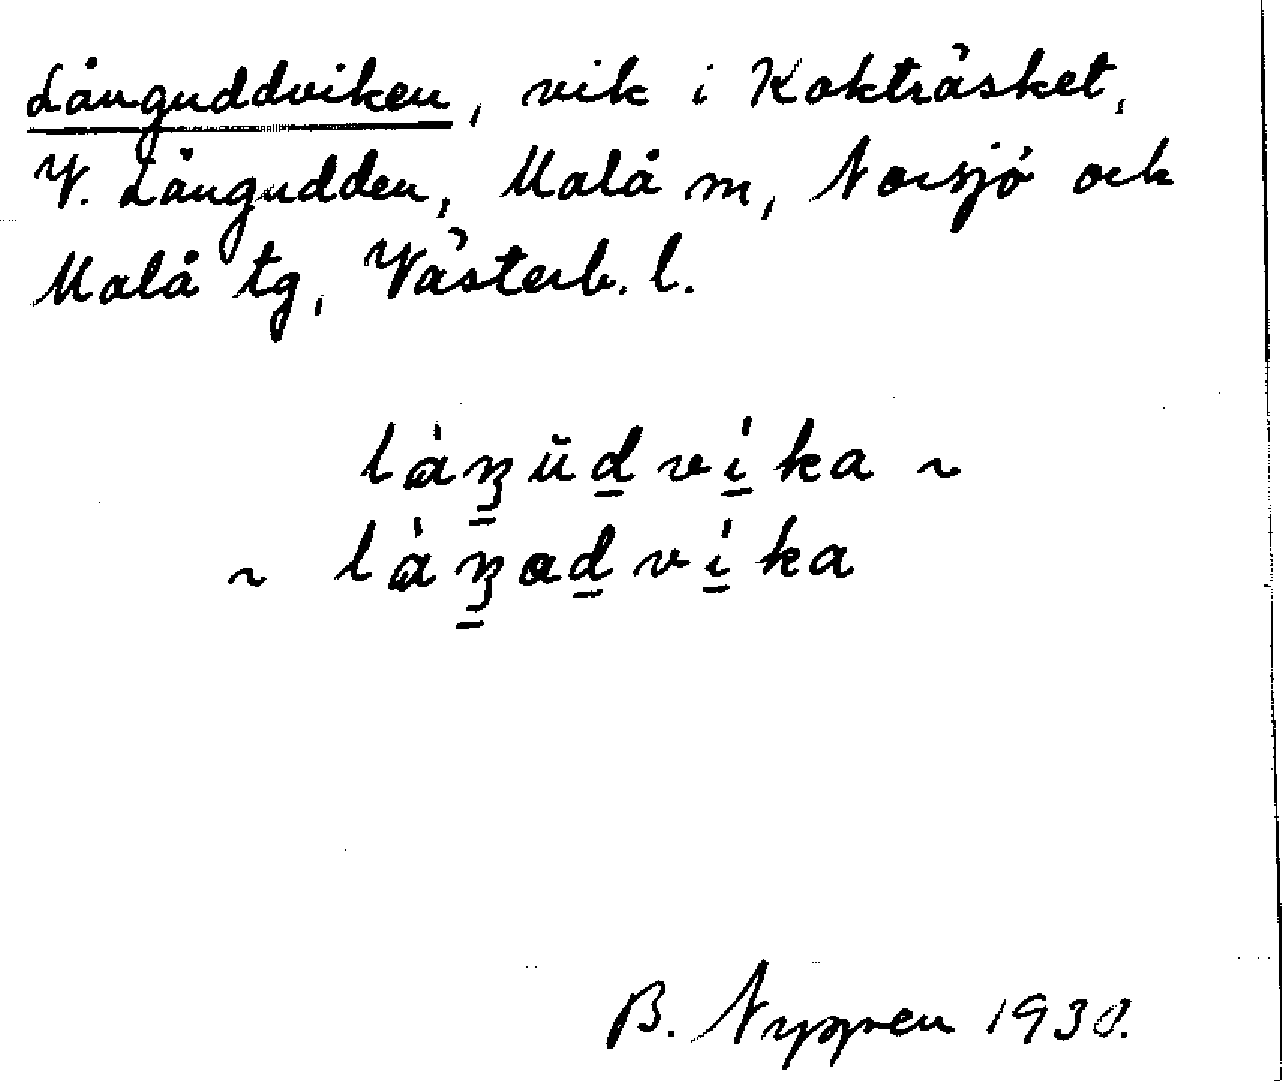 Långuddviken, vik i Kokträsket,
V. Långudden, Malå sn, Norsjö och
Malå tg, Västerb. l.
lȧŋŭd vi̇ka ~
~ lȧŋad vi̇ka
B. 1930.